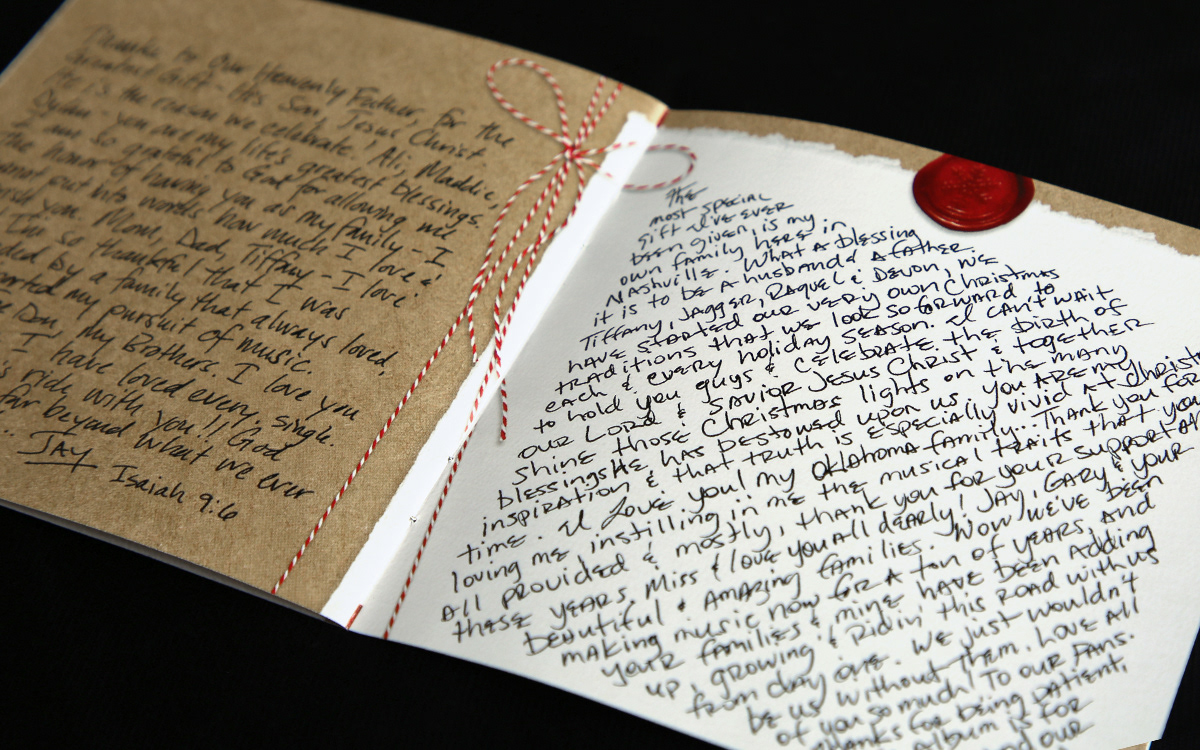 Thanks to Our Heavenly Father, for the
Greatest Gift - His Son, Jesus Christ
He is the reason we celebrate! Ali, Maddie,
you are my life's greatest blessings.
I am so grateful to God for allowing me
the honor of having you as my family - I
cannot put into words how much I love &
you. Mom, Dad, Tiffany - I love
I'm so thankful that I was
by a family that always loved,
my pursuit of music.
Don, my Brothers, I love you
I have loved every single
ride with you!! God
far beyond what we ever
JAY
Isaiah 9:6
The
most special
gift I've ever
been given, is my
own family here in
Nashville. What a blessing
it is to be a husband & father.
Tiffany, Jagger, Raquel & Devon, we
have started our very own Christmas
traditions that we look so forward to
each & every holiday season. I can't wait
to hold you guys & celebrate the birth of
our Lord & Savior Jesus Christ & together
shine those Christmas lights on the many
blessings He has bestowed upon us. You are my
inspiration & that truth is especially vivid at Christmas
time. I Love you! My Oklahoma family... Thank you for
loving me, instilling in me the musical traits that you
all provided & mostly, thank you for your support all
these years. Miss & love you all dearly! Jay, Gary & your
beautiful & amazing families. Wow! We've been
making music now for a ton of years, and
your families & mine have been adding
up, growing & ridin' this road with us
from day one. We just wouldn't
be us without them. Love all
of you so much! To our fans.
thanks for being patient,
Album is for
our